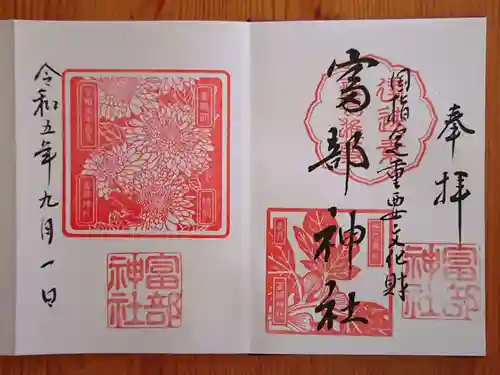 奉拝
国指定重要文化財
富部神社
富部神社
令和五年九月一日
富部神社